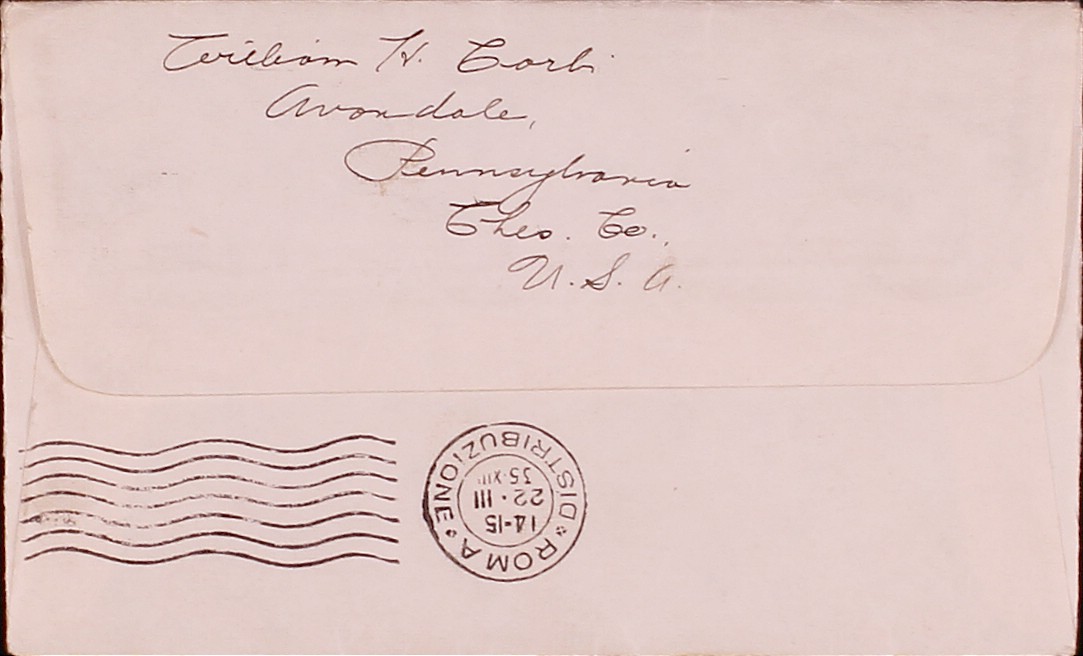 William H. Corbi
Avondale,
Pennsylvania
Ches. Co.,
U. S. A.
ROMA * DISTRIBUZIONE *
14-15
22 · III
35 · XIII